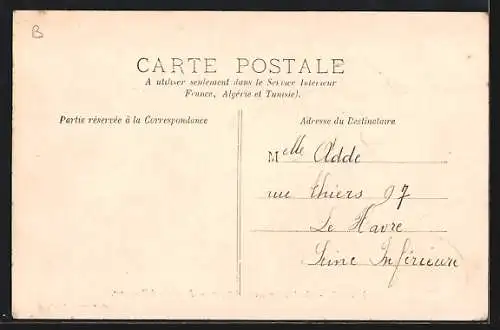 B
CARTE POSTALE
A utiliser seulement dans le Service Intérieur
France, Algérie et Tunisie).
Partie réservée à la Correspondance
Adresse du Destinataire
Melle Adde
rue Thiers 97
Le Havre
Seine Inférieure